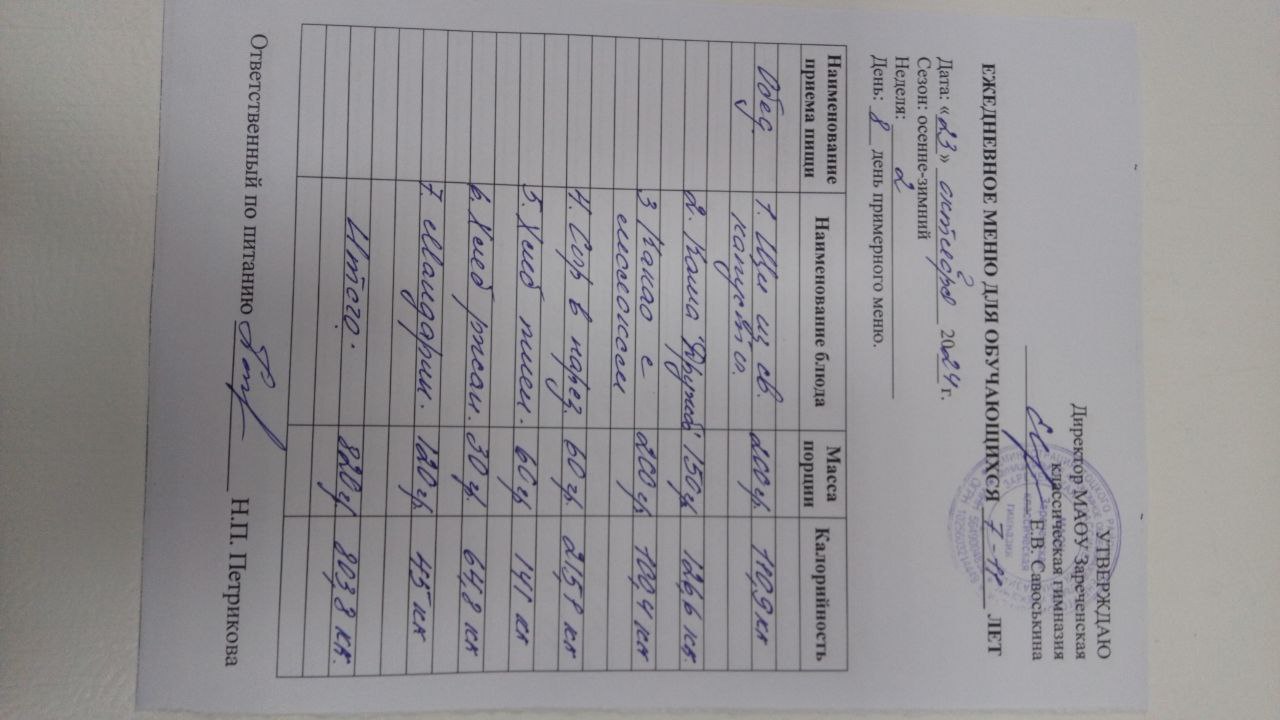 УТВЕРЖДАЮ
Директор МАОУ Зареченская
классическая гимназия
Е.В. Савоськина
ЕЖЕДНЕВНОЕ МЕНЮ ДЛЯ ОБУЧАЮЩИХСЯ 7-11. ЛЕТ
Дата: «23» октября 2024 г.
Сезон: осенне-зимний
Неделя: 2
День: 8 день примерного меню.
Наименование приема пищи Наименование блюда Масса порции Калорийность
Обед 1. Щи из св. 200 гр. 110,9 кк
капусты.
2. Каша "Дружба" 150 гр. кк.
3 Какао с 200 гр. 100,4 кк
молоком
4. Сыр в нарез. 60 гр. 215,8 кк
5. Хлеб пшен. 60 гр 141 кк
6. Хлеб ржан. 30 гр. 64,8 кк
7. Мандарин. 120 гр. 45 кк
Итого. 820 гр. 803,8 кк.
Ответственный по питанию Н.П. Петрикова